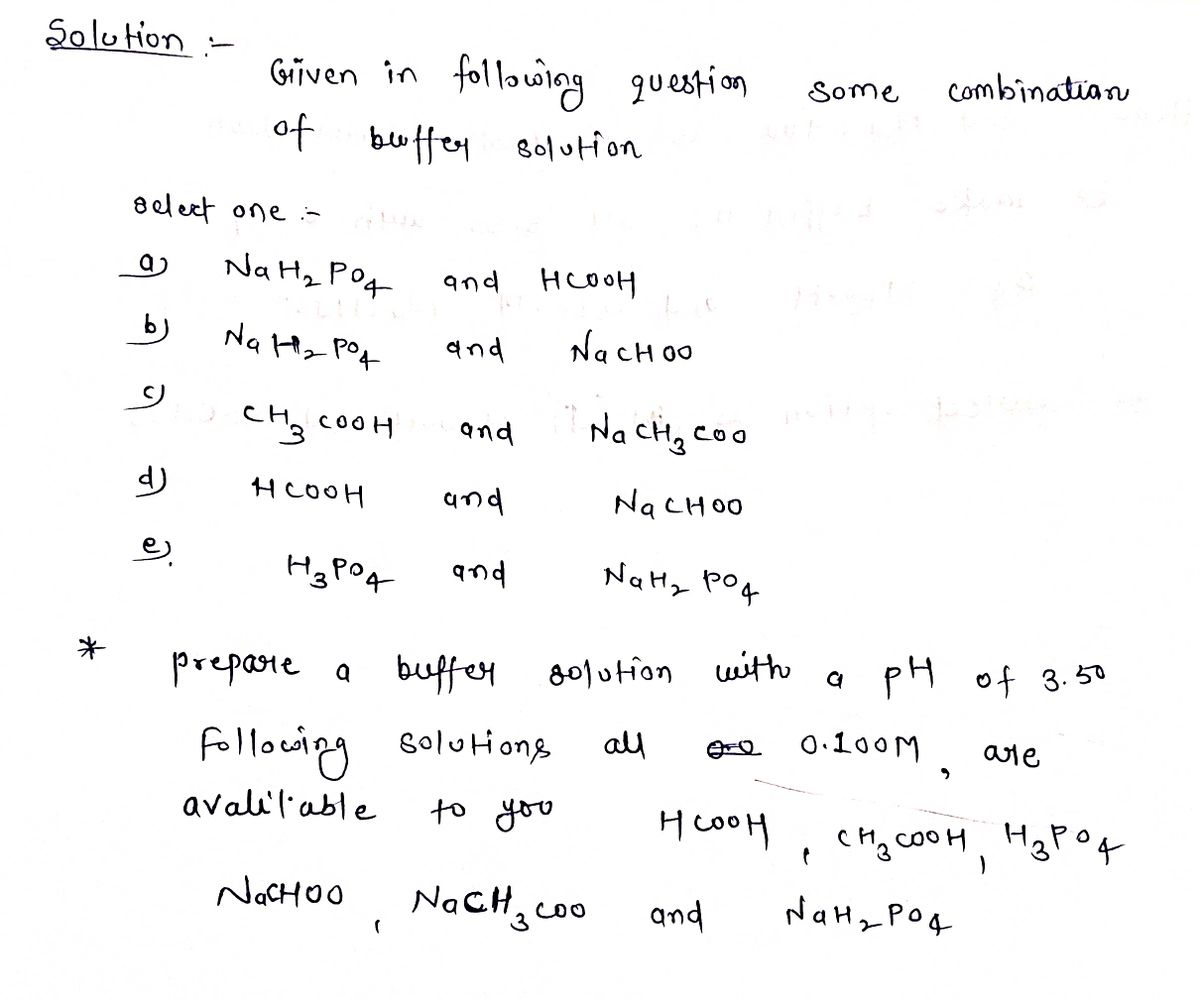 Solution :-
Given in following question some combination
of buffer solution
select one :-
a) NaH₂PO₄ and HCOOH
b) NaH₂PO₄ and NaCHOO
c) CH₃COOH and NaCH₃COO
d) HCOOH and NaCHOO
e). H₃PO₄ and NaH₂PO₄
* prepare a buffer solution with a pH of 3.50
following solutions all 0.100M, are
avalilable to you HCOOH, CH₃COOH, H₃PO₄
NaCHOO, NaCH₃COO and NaH₂PO₄